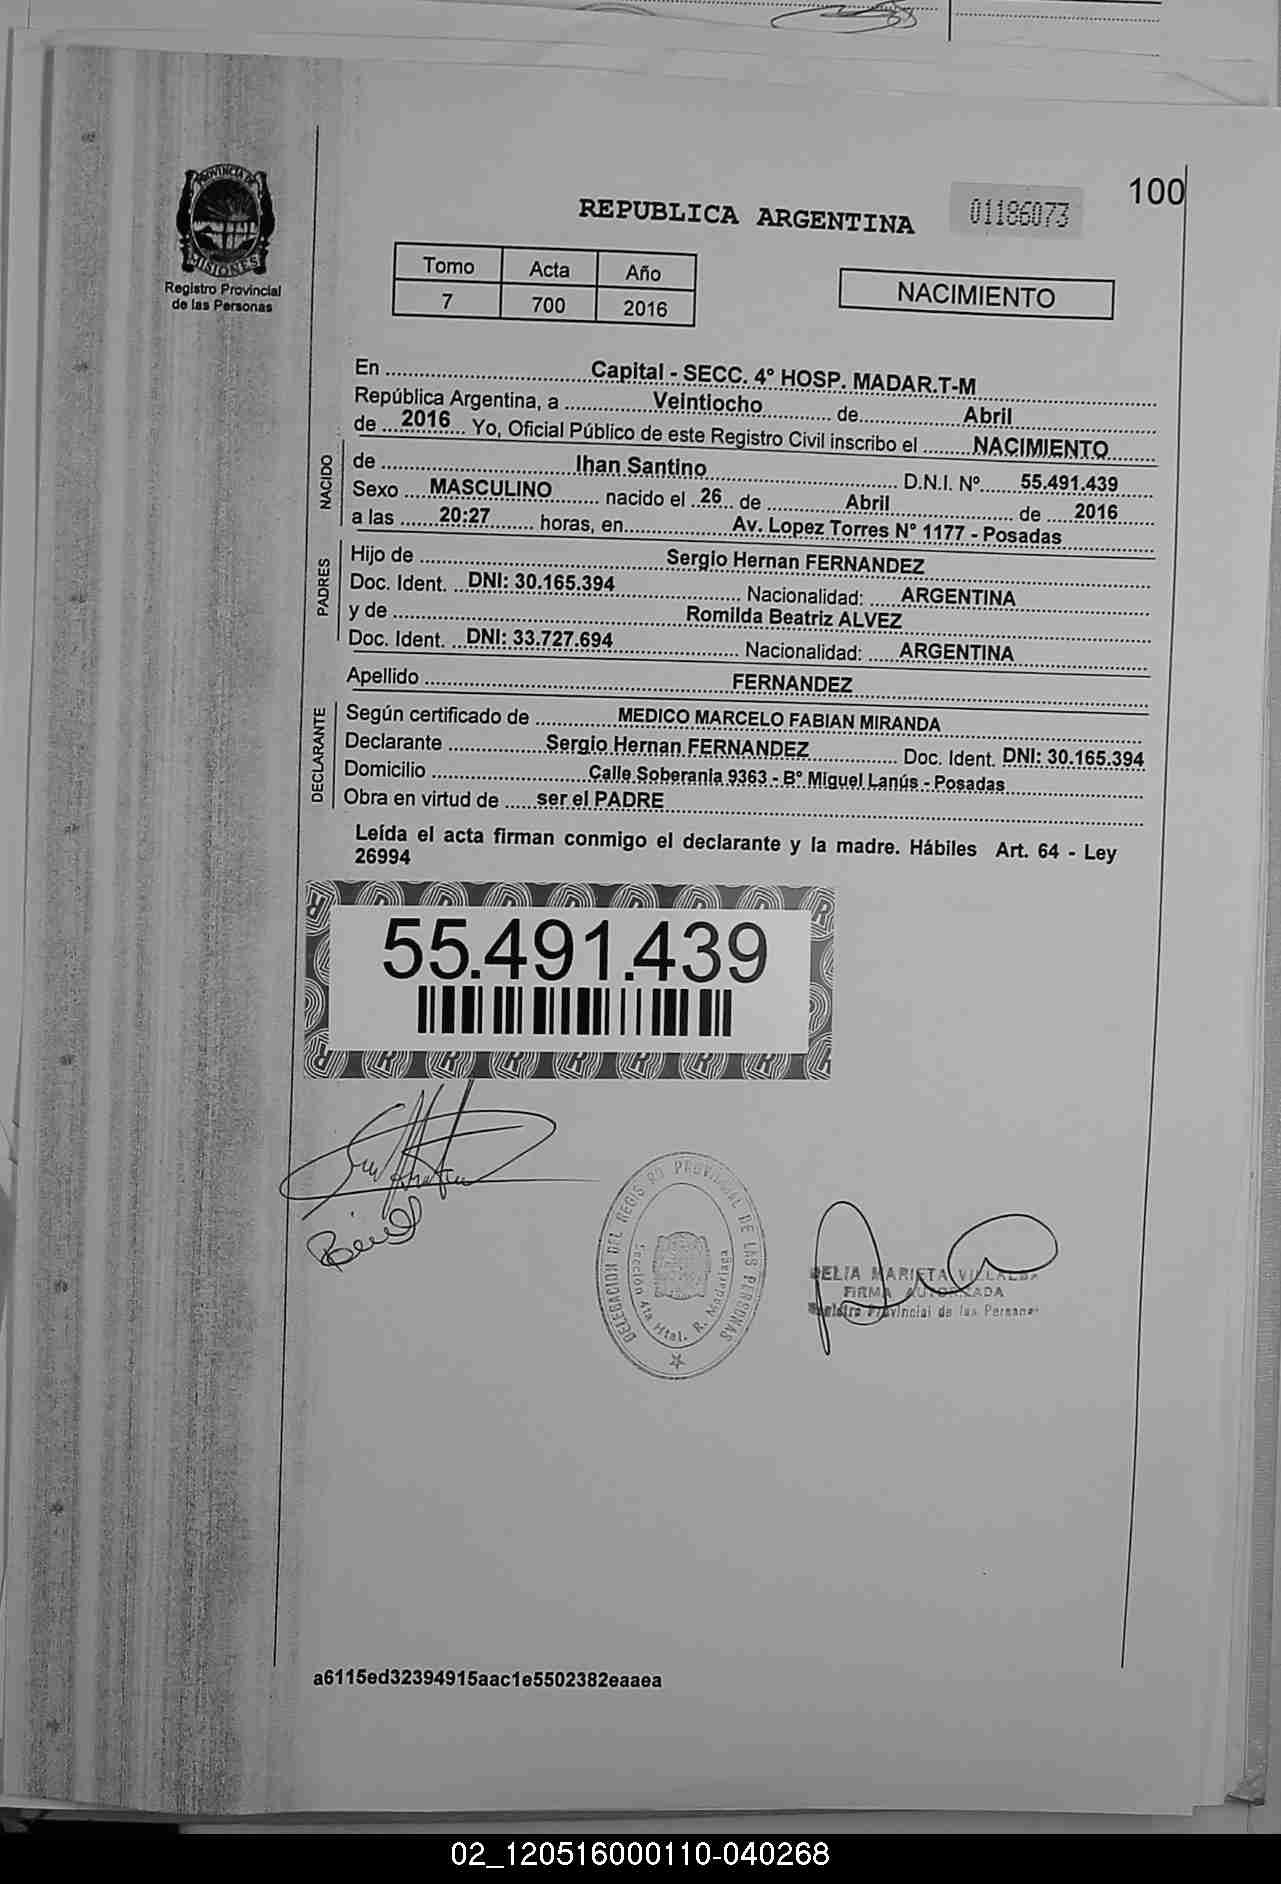 100
PROVINCIA DE
MISIONES
Registro Provincial
de las Personas
REPUBLICA ARGENTINA
01186073
Tomo Acta Año
7 700 2016
NACIMIENTO
En Capital - SECC. 4° HOSP. MADAR.T-M
República Argentina, a Veintiocho de Abril
de 2016 Yo, Oficial Público de este Registro Civil inscribo el NACIMIENTO
NACIDO
de Ihan Santino D.N.I. Nº 55.491.439
Sexo MASCULINO nacido el 26 de Abril de 2016
a las 20:27 horas, en Av. Lopez Torres N° 1177 - Posadas
PADRES
Hijo de Sergio Hernan FERNANDEZ
Doc. Ident. DNI: 30.165.394 Nacionalidad: ARGENTINA
y de Romilda Beatriz ALVEZ
Doc. Ident. DNI: 33.727.694 Nacionalidad: ARGENTINA
Apellido FERNANDEZ
DECLARANTE
Según certificado de MEDICO MARCELO FABIAN MIRANDA
Declarante Sergio Hernan FERNANDEZ Doc. Ident. DNI: 30.165.394
Domicilio Calle Soberania 9363 - B° Miguel Lanús - Posadas
Obra en virtud de ser el PADRE
Leída el acta firman conmigo el declarante y la madre. Hábiles Art. 64 - Ley
26994
55.491.439
DELEGACION DEL REGISTRO PROVINCIAL DE LAS PERSONAS
Sección 4ta Htal. R. Madariaga
DELIA MARIETA VILLALBA
FIRMA AUTORIZADA
Registro Provincial de las Personas
a6115ed32394915aac1e5502382eaaea
02_120516000110-040268